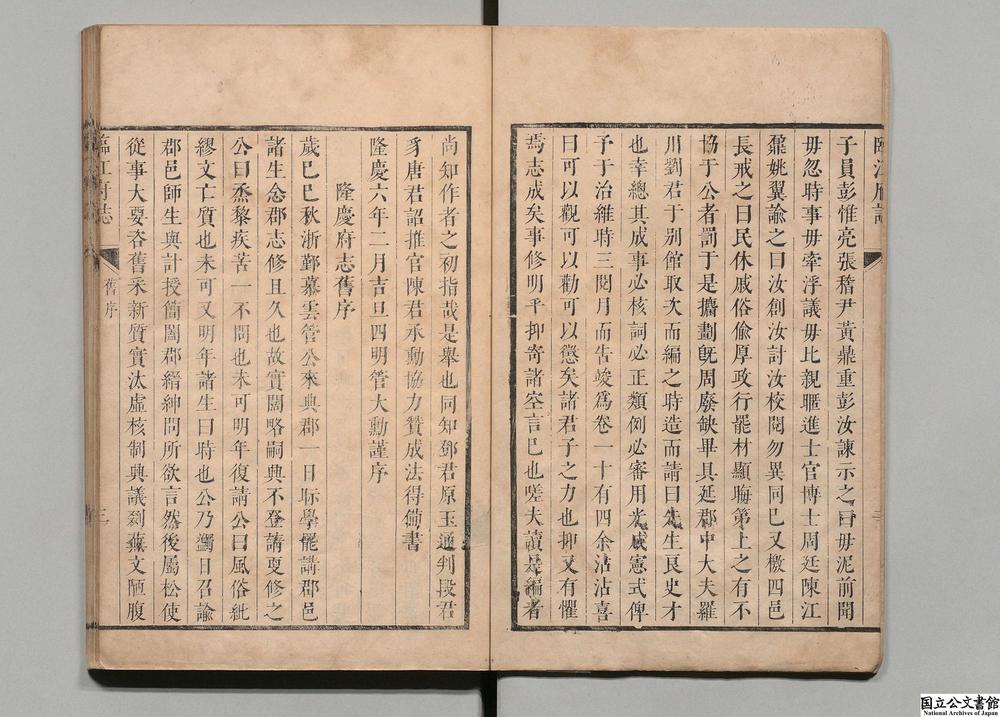 子員彭惟亮張嵇尹黃鼎重彭汝諫示之曰毋泥前聞
毋忽時事毋牽浮議毋比親暱進士官博士周廷陳江
鼐姚翼諭之曰汝創汝討汝校閱勿異同巳又檄四邑
長戒之曰民休戚俗偷厚政行罷材顯晦第上之有不
協于公者罰于是攟劃旣周廢缺畢具延郡中大夫羅
川劉君于別館取次而編之時造而請曰先生良史才
也幸總其成事必核詞必正類例必審用光成憲式俾
予于治維時三閱月而告峻爲卷一十有四余沾沾喜
曰可以觀可以勸可以懲矣諸君子之力也抑又有懼
焉志成矣事修明乎抑寄諸空言巳也嗟夫讀是編者
尚知作者之初指哉是舉也同知鄧君原玉通判段君
豸唐君詔推官陳君承勳協力贊成法得倂書
隆慶六年二月吉旦四明管大勳謹序
隆慶府志舊序
歲巳巳秋浙鄞慕雲管公來典郡一日眎學罷講郡邑
諸生念郡志修且久也故實闊略嗣典不登請夏修之
公曰烝黎疾苦一不問也未可明年復請公曰風俗紕
繆文亡質也未可又明年諸生曰時也公乃蠲日召諭
郡邑師生與計授簡闔郡縉紳問所欲言然後屬松使
從事大要咨舊采新質實汰虛核制典議剗蕪文陋腹
臨江府志
舊序
三
国立公文書館
National Archives of Japan